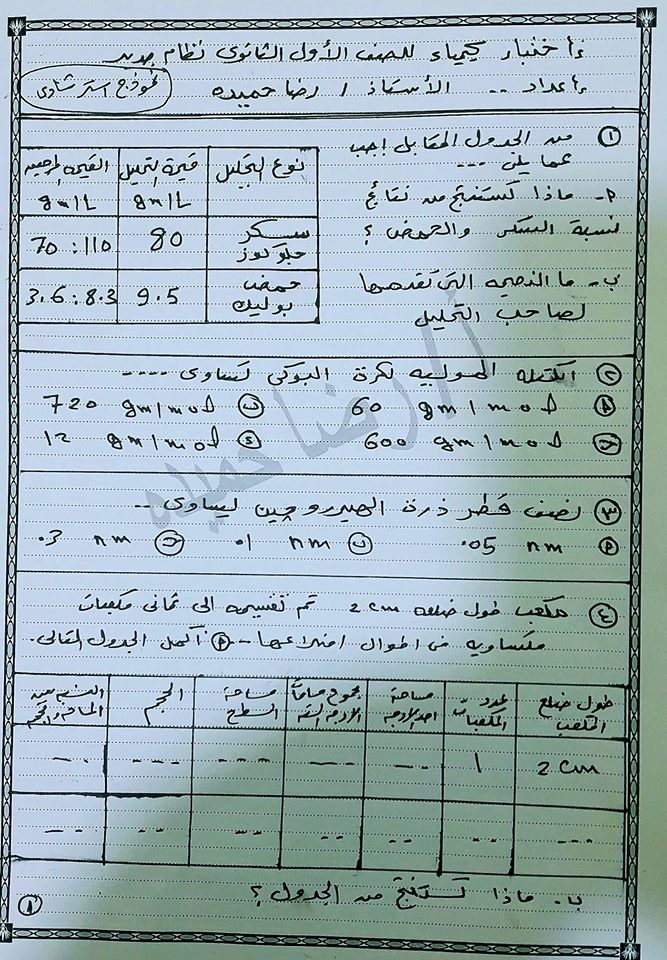 إختبار كيمياء للصف الأول الثانوى نظام جديد
إعداد .. الأستاذ / رضا حميده
نموذج استرشادى
١ من الجدول المقابل إجب
عما يلى ---
P- ماذا تستنتج من نتائج
نسبة السكر والحمض ؟
ب- ما النصيحه التى تقدمها
لصاحب التحليل
نوع التحليل | قيمة التحليل gm/L | القيمه المرجعيه gm/L
سكر جلوكوز | 80 | 70 : 110
حمض بوليك | 9.5 | 3.6 : 8.3
أ/ رضا حميده
٢ الكتله الموليه لكرة البوكى تساوى ----
P 60 gm/mol ب 720 gm/mol
ج 600 gm/mol د 12 gm/mol
٣ نصف قطر ذرة الهيدروجين يساوى --
P .05 nm ب .1 nm ج .3 nm
٤ مكعب طول ضلعه 2 cm تم تقسيمه الى ثمانى مكعبات
متساويه فى اطوال اضلاعها -- P أكمل الجدول التالى.
طول ضلع المكعب | عدد المكعبات | مساحة احد الاوجه | مجموع مساحة الاوجه الستة | مساحة السطح | الحجم | النسبه بين المساحه والحجم
2 cm | 1 | --- | --- | --- | --- | ---
--- | -- | -- | -- | -- | -- | --
ب- ماذا تستنتج من الجدول ؟
١